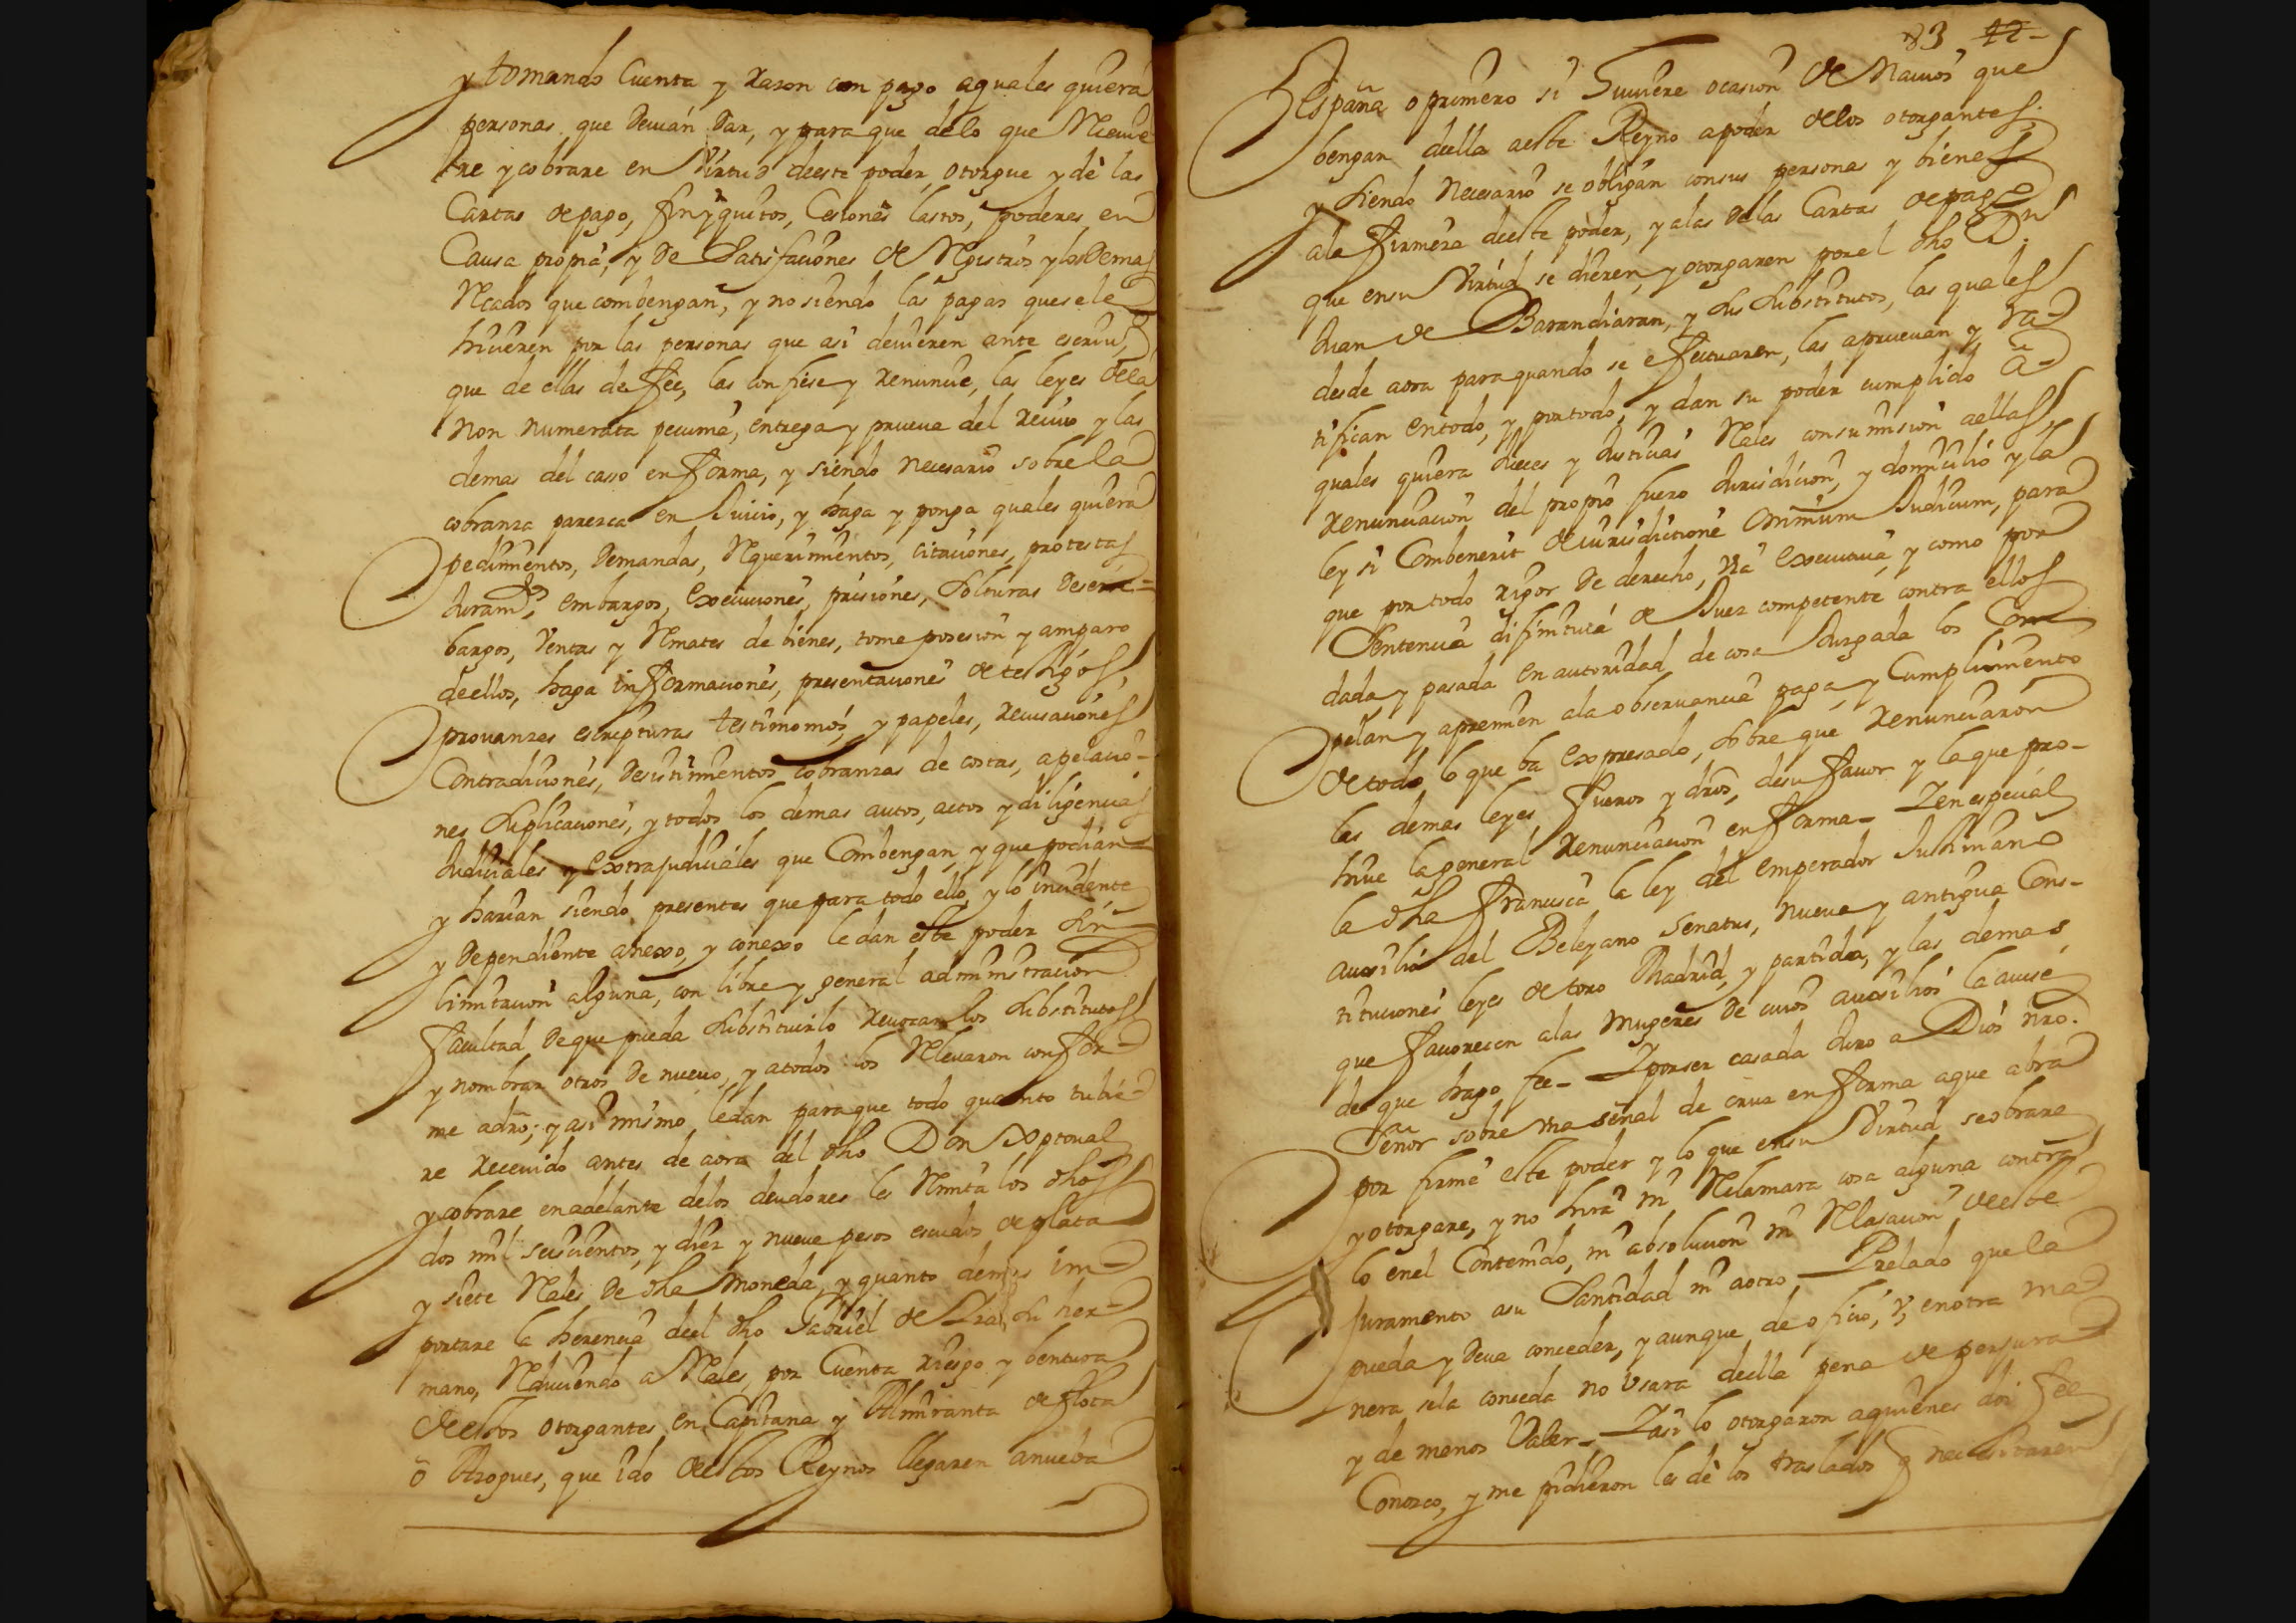 y tomando Cuenta y razon con pago a quales quiera
personas que devian dar, y para que de lo que Reciuie
re y cobrare en Virtud de este poder, otorgue y dè las
Cartas de pago, finyquitos, Cesiones lastos, poderes en
Causa propia, y de Satisfaciones de Registros y los demas
Recados que combengan, y no siendo las pagas que se le
hicieren por las personas que asi devieren ante escriu.º
que de ellas de fee, las confiese y renuncie, las leyes de la
non numerata pecunia, entrega y prueua del reciuo y las
demas del caso en forma, y siendo necesario sobre la
cobranza paresca en Juicio, y haga y ponga quales quiera
pedimientos, demandas, Requerimientos, citaciones, protestas
Juram.tos, embargos, execuciones, prisiones, Solturas desem-
bargos, Ventas y Remates de bienes, tome posesion y amparo
de ellos, haga informaciones, presentaciones de testigos,
prouanzas escripturas testimonios, y papeles, recusaciones
Contradiciones, desistimientos cobranzas de costas, apelacio-
nes Suplicaciones, y todos los demas autos, actos y diligencias
Judiciales y extrajudiciales que Combengan, y que podian
y harian siendo presentes que para todo ello, y lo incidente
y dependiente anexo, y conexo le dan este poder Sin
limitacion alguna, con libre y general administracion
facultad de que pueda Substituirlo reuocar los Substitutos
y nombrar otros de nueuo, y a todos los Releuaron confor-
me a dro; y asi mismo le dan para que todo quanto tubie-
re receuido antes de aora del dho Don Xptoual
y cobrare en adelante de los deudores les Remita los dhos
dos mil seiscientos, y diez y nueue pesos escudos de plata
y siete Reales de dha moneda, y quanto demas im-
portare la herencia de el dho Gabriel de Su her-
mano, Reduciendo a Reales, por Cuenta riesgo y bentura
de estos otorgantes en Capitana y Almiranta de flota
ô Azogues, que îdo de estos Reynos llegaren a nueba
83 42
España o primero si Tuuiere ocasion de Nauios que
bengan de ella a este Reyno a poder de los otorgantes.
y siendo necesario se obligan con sus personas y bienes
a la firmeza de este poder, y a las de las Cartas de pago
que en su Virtud se dieren, y otorgaren por el dho D.n
Juan de Barandiaran, y Sus Substitutos, las quales
desde aora para quando se efectuaren, las aprueuan y ra-
tifican en todo, y por todo, y dan su poder cumplido â
quales quiera Jueces y Justicias Reales con sumision a ellas,
renunciacion del propio fuero Jurisdicion, y domicilio y la
ley si Combenerit de iurisdictione omnium Judicum, para
que por todo rigor de derecho, via executiua, y como por
Sentencia difinitiua de Juez competente contra ellos
dada y pasada en autoridad de cosa Juzgada los Com
pelan y apremien a la obseruancia paga, y Cumplimiento
de todo lo que ba expresado, Sobre que renunciaron
las demas leyes fueros y dros, de su fauor y la que pro-
hiue la general renunciacion en forma- Y en especial
la dha francisca la ley del emperador Justiniano
auxilio del Beleyano Senatus, nueua y antigua Cons-
tituciones leyes de toro Madrid, y partida, y las demas
que fauorescen a las mugeres de cuios auxilios la auise
de que hago fee- Y por ser casada Juro a Dios nro.
Señor sobre vna señal de cruz en forma a que abra
por firme este poder y lo que en su Virtud se obrare
y otorgare, y no hira ni Reclamara cosa alguna contra
lo en el Contenido, ni absolucion ni Relaxacion de este
juramento a su Santidad ni a otro Prelado que la
pueda y deua conceder, y aunque de oficio, û, en otra ma
nera se la conceda no Vsara de ella pena de perjura
y de menos Valer- Y asi lo otorgaron a quienes doi fee
Conozco, y me pidieron les dè los traslados q necesitaren